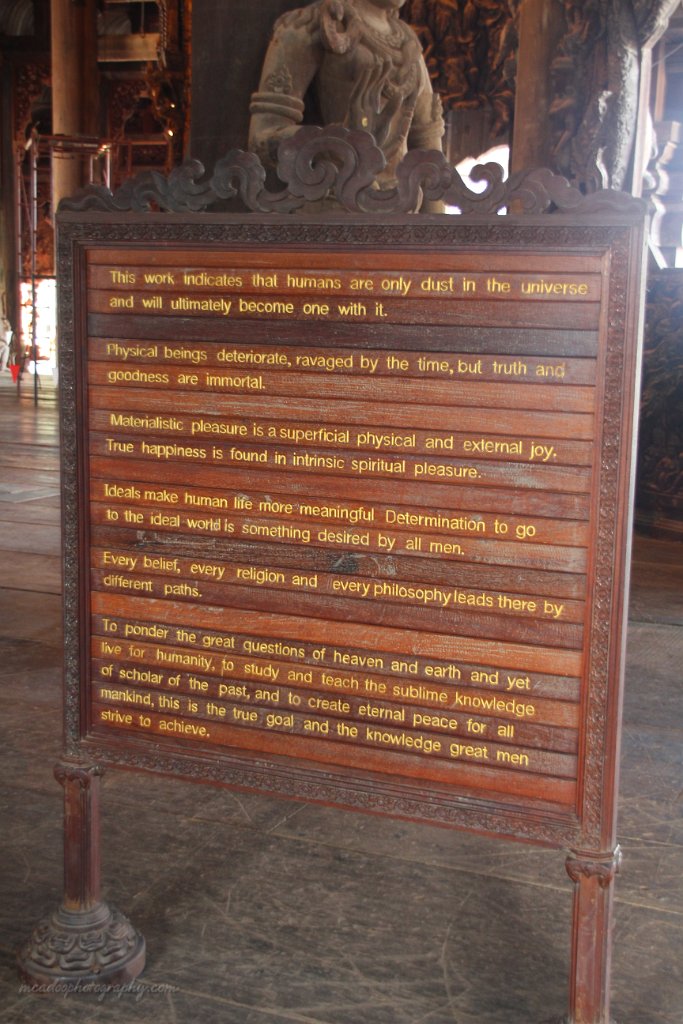 This work indicates that humans are only dust in the universe
and will ultimately become one with it.
Physical beings deteriorate, ravaged by the time, but truth and
goodness are immortal.
Materialistic pleasure is a superficial physical and external joy.
True happiness is found in intrinsic spiritual pleasure.
Ideals make human life more meaningful Determination to go
to the ideal world is something desired by all men.
Every belief, every religion and every philosophy leads there by
different paths.
To ponder the great questions of heaven and earth and yet
live for humanity, to study and teach the sublime knowledge
of scholar of the past, and to create eternal peace for all
mankind, this is the true goal and the knowledge great men
strive to achieve.
mcadoophotography.com